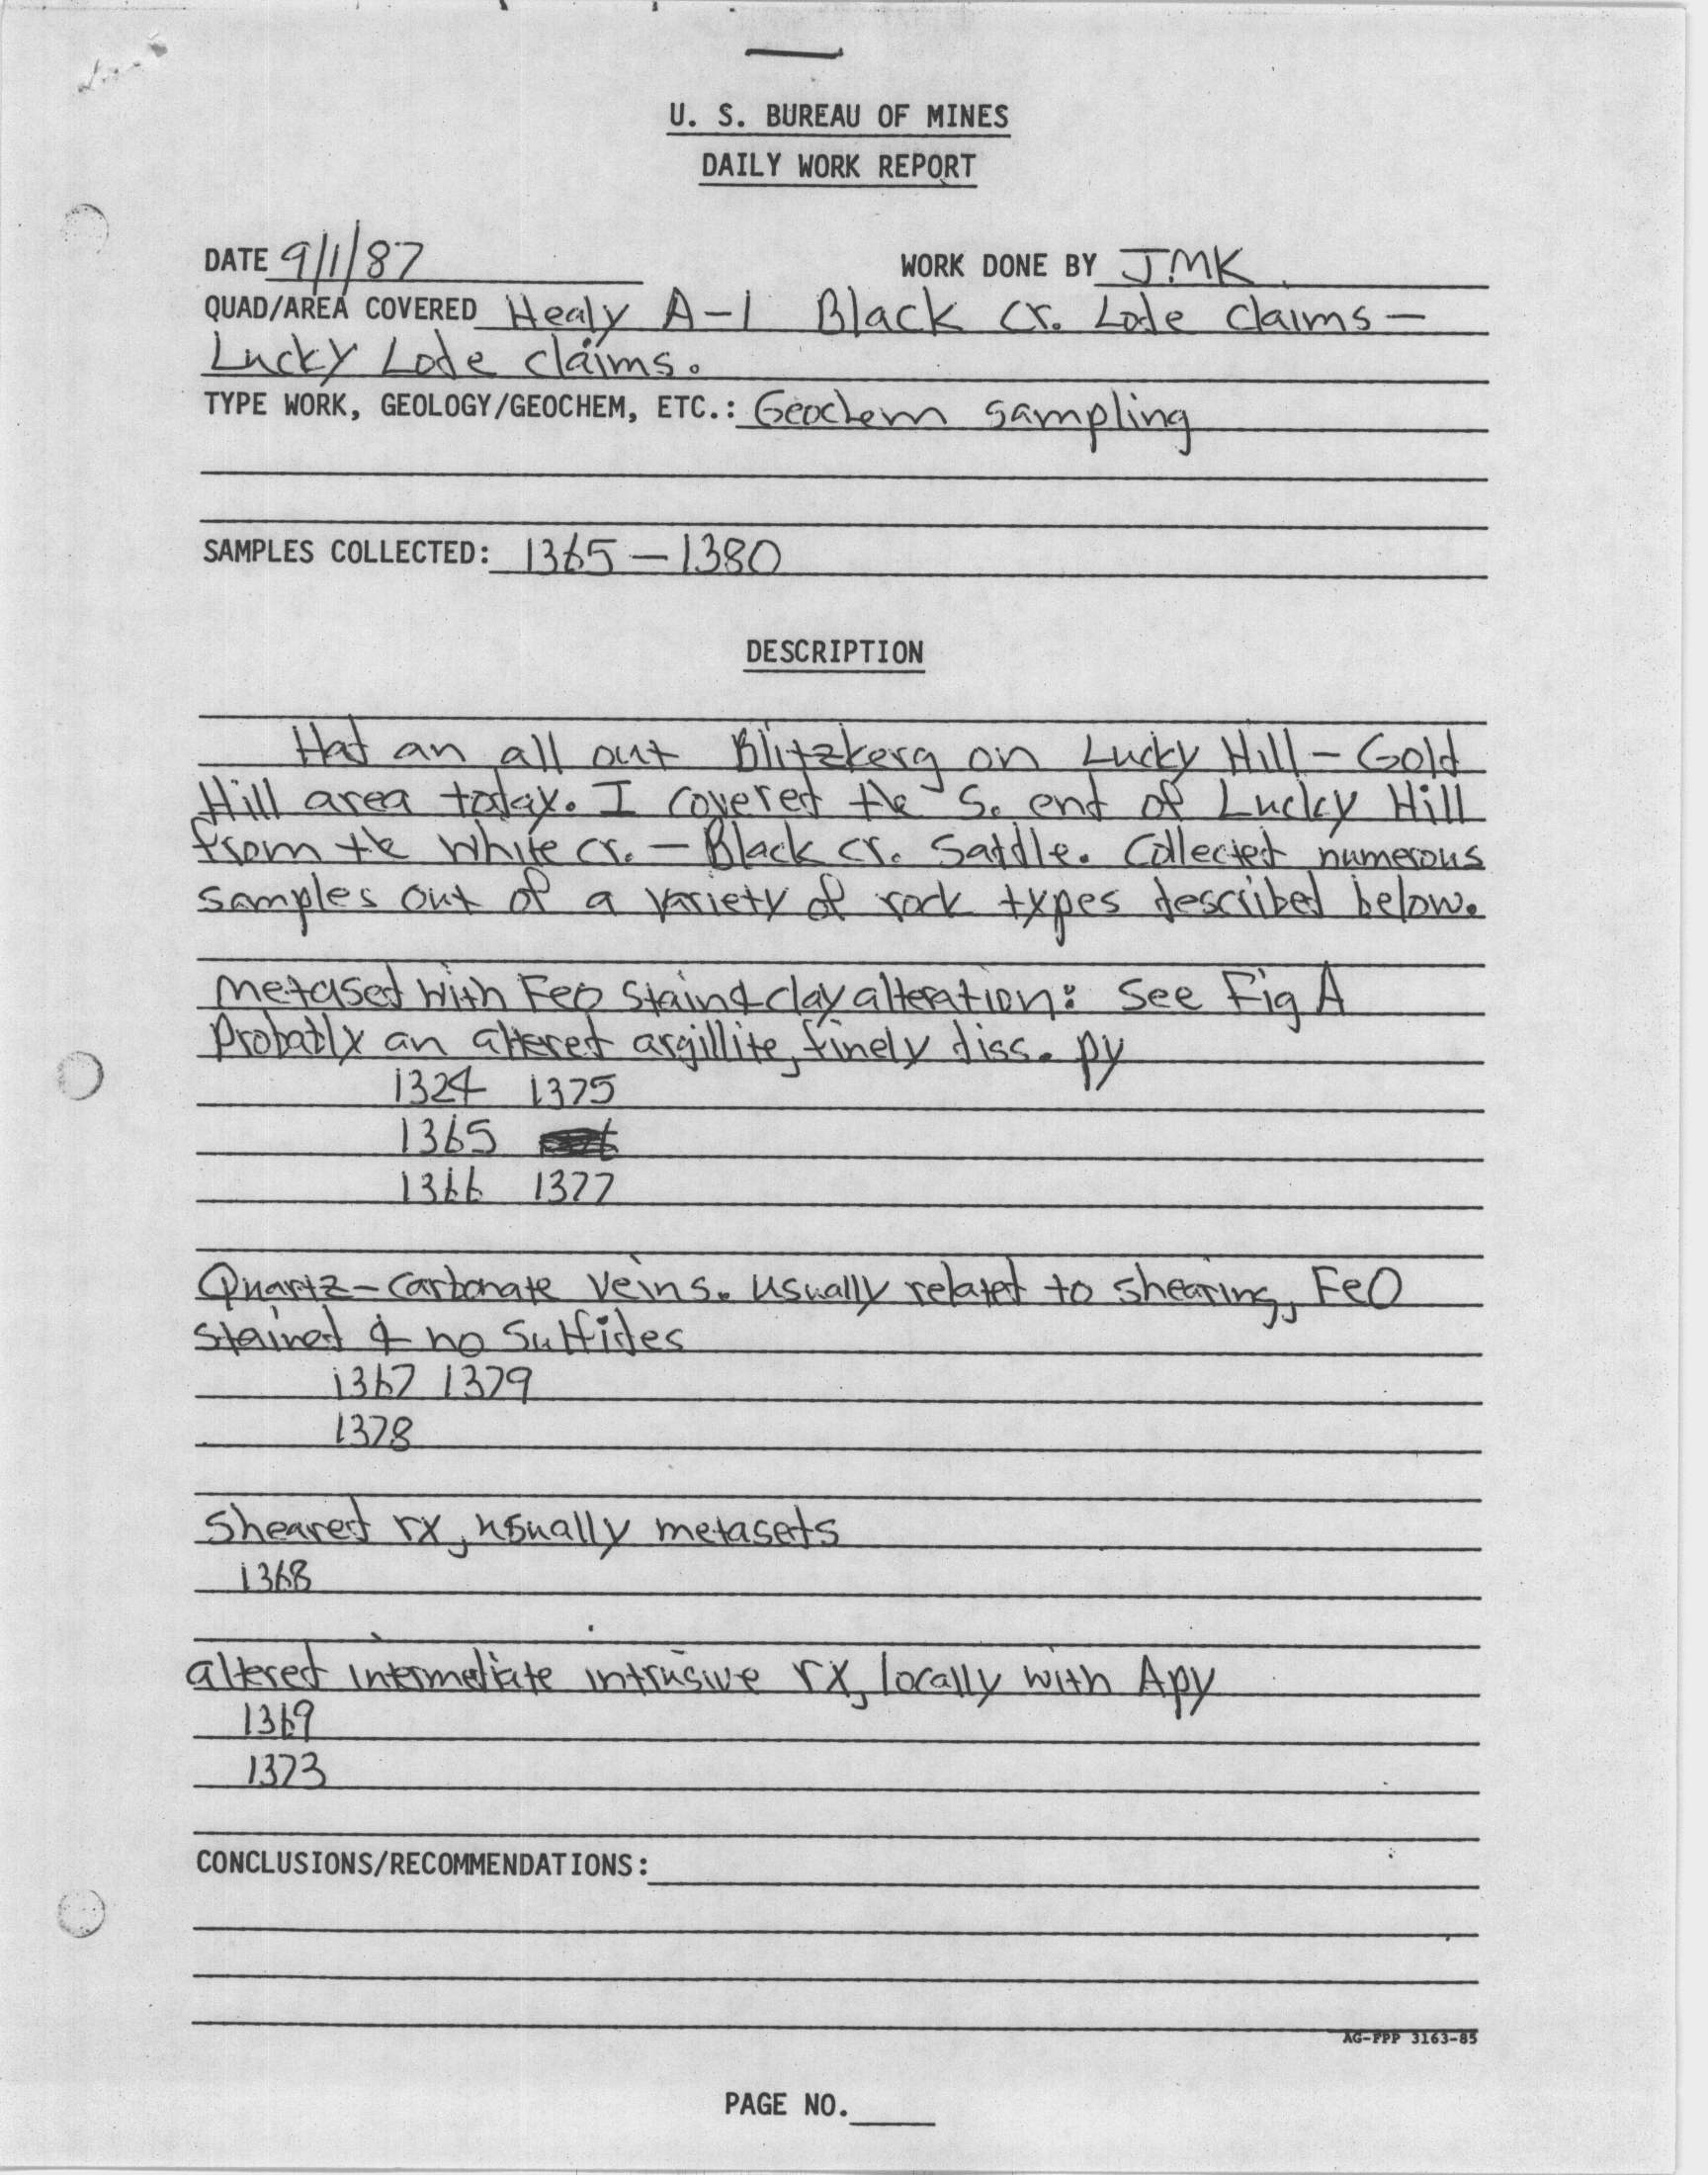 U. S. BUREAU OF MINES
DAILY WORK REPORT
DATE 9/1/87 WORK DONE BY JMK
QUAD/AREA COVERED Healy A-1 Black Cr. Lode claims -
Lucky Lode claims.
TYPE WORK, GEOLOGY/GEOCHEM, ETC.: Geochem sampling
SAMPLES COLLECTED: 1365 - 1380
DESCRIPTION
Had an all out Blitzkerg on Lucky Hill - Gold
Hill area today. I covered the S. end of Lucky Hill
from the White Cr. - Black Cr. Saddle. Collected numerous
samples out of a variety of rock types described below.
Metased with FeO stain & clay alteration: See Fig A
Probably an altered argillite, finely diss. py
1324 1375
1365
1366 1377
Quartz-carbonate veins. Usually related to shearing, FeO
stained & no Sulfides
1367 1379
1378
Sheared rx, usually metaseds
1368
altered intermediate intrusive rx, locally with Apy
1369
1373
CONCLUSIONS/RECOMMENDATIONS:
AG-FPP 3163-85
PAGE NO.